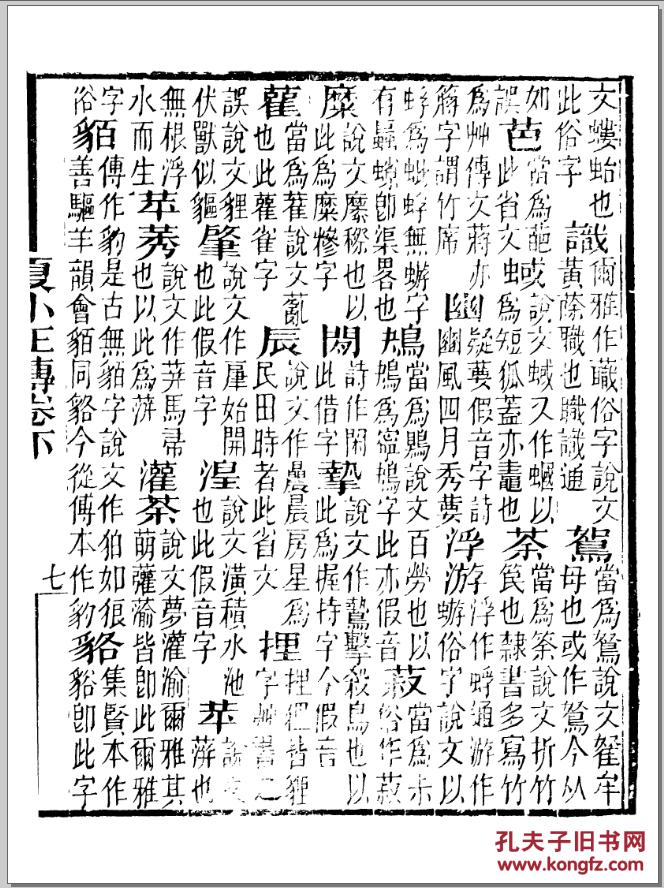 文螻蛄也
此俗字
識
爾雅作蘵俗字說文
黃蒢職也職識通
鴽
當為䳺說文䳺牟
母也或作鴽今从
如
誤
芭
當為葩
此省文
蜮
說文蜮又作蟈以
為短狐蓋亦鼃也
荼
當為筡說文折竹
笢也隸書多寫竹
為艸傳文蔣亦
蔣字謂竹席
幽
疑葽假音字詩
豳風四月秀葽
浮游
字浮作蜉通游作
蝣俗字說文以
蜉為蚍蜉無蝣字
有蟲螶即渠畧也
鳩
當為鴂說文百勞也以
鳩為鶻鳩字此亦假音
菽
當為尗
俗作菽
糜
說文穈穄也以
此為糜糝字
閑
詩作閑
此借字
摯
說文作鷙擊殺鳥也以
此為握持字今假音
雚
當為萑說文薍
也此雚雀字
辰
說文作曟晨房星為
民田時者此省文
貍
貍皆貍
字艸
誤說文貍
伏獸似貙
肇
說文作肁始開
也此假音字
湟
說文潢積水池
也此假音字
苹
說文
蓱也
無根浮
水而生
苹莠
說文作荓馬帚
也以此為蓱
灌荼
說文夢灌渝爾雅其
萌虇蕍皆即此爾雅
字
俗
貊
傳作豹是古無貊字說文作狛如狼
善驅羊韻會貊同貉今從傳本作豹
貉
集賢本作
貉即此字
夏小正傳卷下
七
孔夫子旧书网
www.kongfz.com